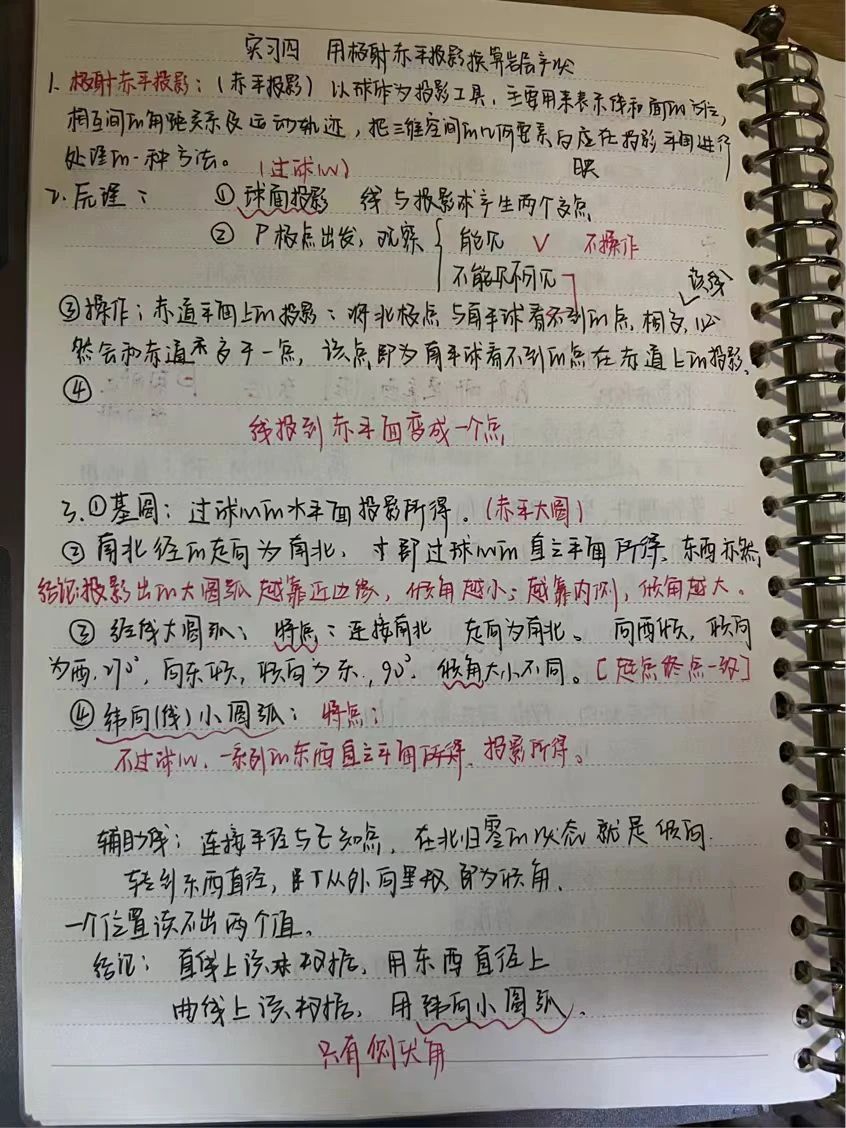 实习四 用极射赤平投影换算岩层产状
1. 极射赤平投影：(赤平投影) 以球作为投影工具，主要用来表示线和面的方位，
相互间的角距关系及运动轨迹，把三维空间的几何要素反应在投影平面进行
处理的一种方法。 (过球心) 映
2. 原理： ① 球面投影 线与投影球产生两个交点
② P极点出发，观察 能见 ∨ 不操作
不能见不可见
该线
③操作：赤道平面上的投影：将北极点与南半球看不到的点相交，必
然会和赤道平交于一点，该点即为南半球看不到的点在赤道上的投影。
④
线投到赤平面变成一个点
3. ①基圆：过球心的水平面投影所得。(赤平大圆)
② 南北经的走向为南北，才部过球心的直立平面所得、东西亦然
结论投影出的大圆弧越靠近边缘，倾角越小；越靠内侧，倾角越大。
③ 经线大圆弧：特点：连接南北 走向为南北。 向西倾，倾向
为西，270°，向东倾，倾向为东，90°. 倾角大小不同。[起点终点一致]
④ 纬向(线)小圆弧：特点：
不过球心、一系列的东西直立平面所得，投影所得。
辅助线：连接半径与已知点，在北归零的状态就是倾向.
转到东西直径，从外向里数即为倾角.
一个位置读不出两个值。
结论：直线上读数据，用东西直径上
曲线上读数据，用纬向小圆弧。
只有侧伏角